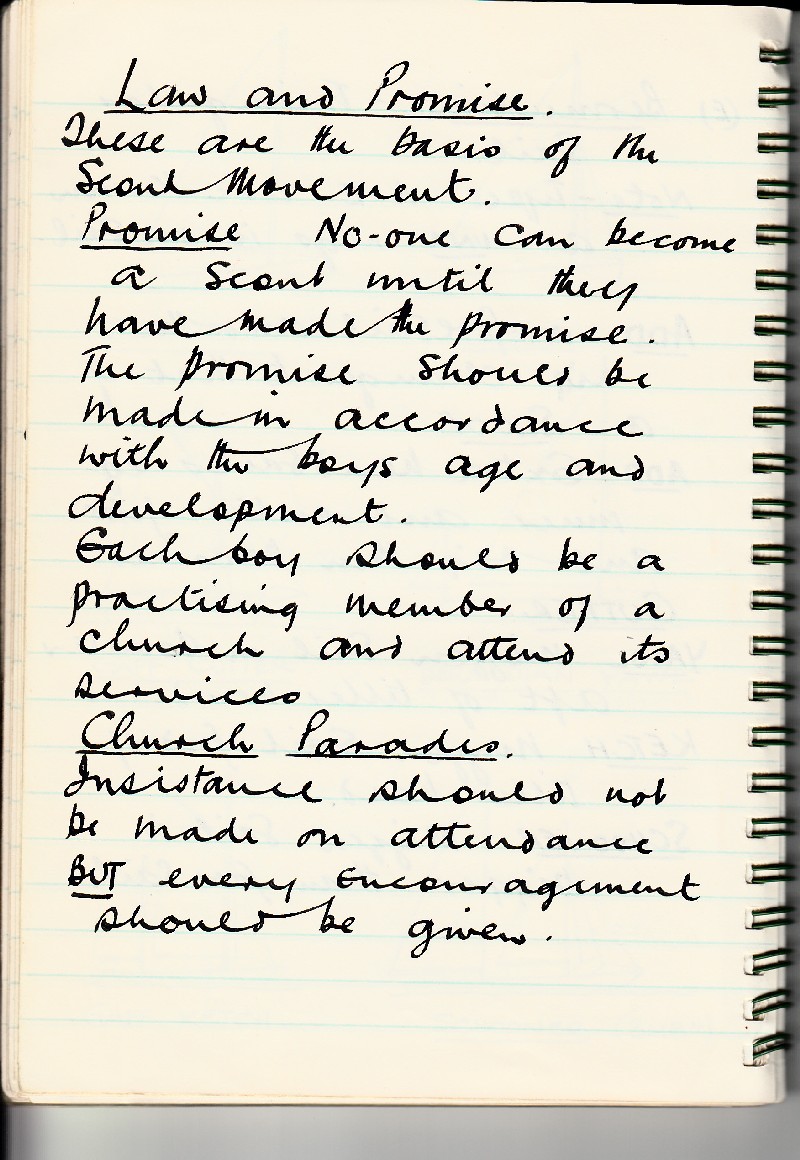 Law and Promise.
These are the basis of the
Scout Movement.
Promise No-one can become
a Scout until they
have made the promise.
The promise should be
made in accordance
with the boys age and
development.
Each boy should be a
practising member of a
church and attend its
services
Church Parades.
Insistance should not
be made on attendance
BUT every encouragement
should be given.